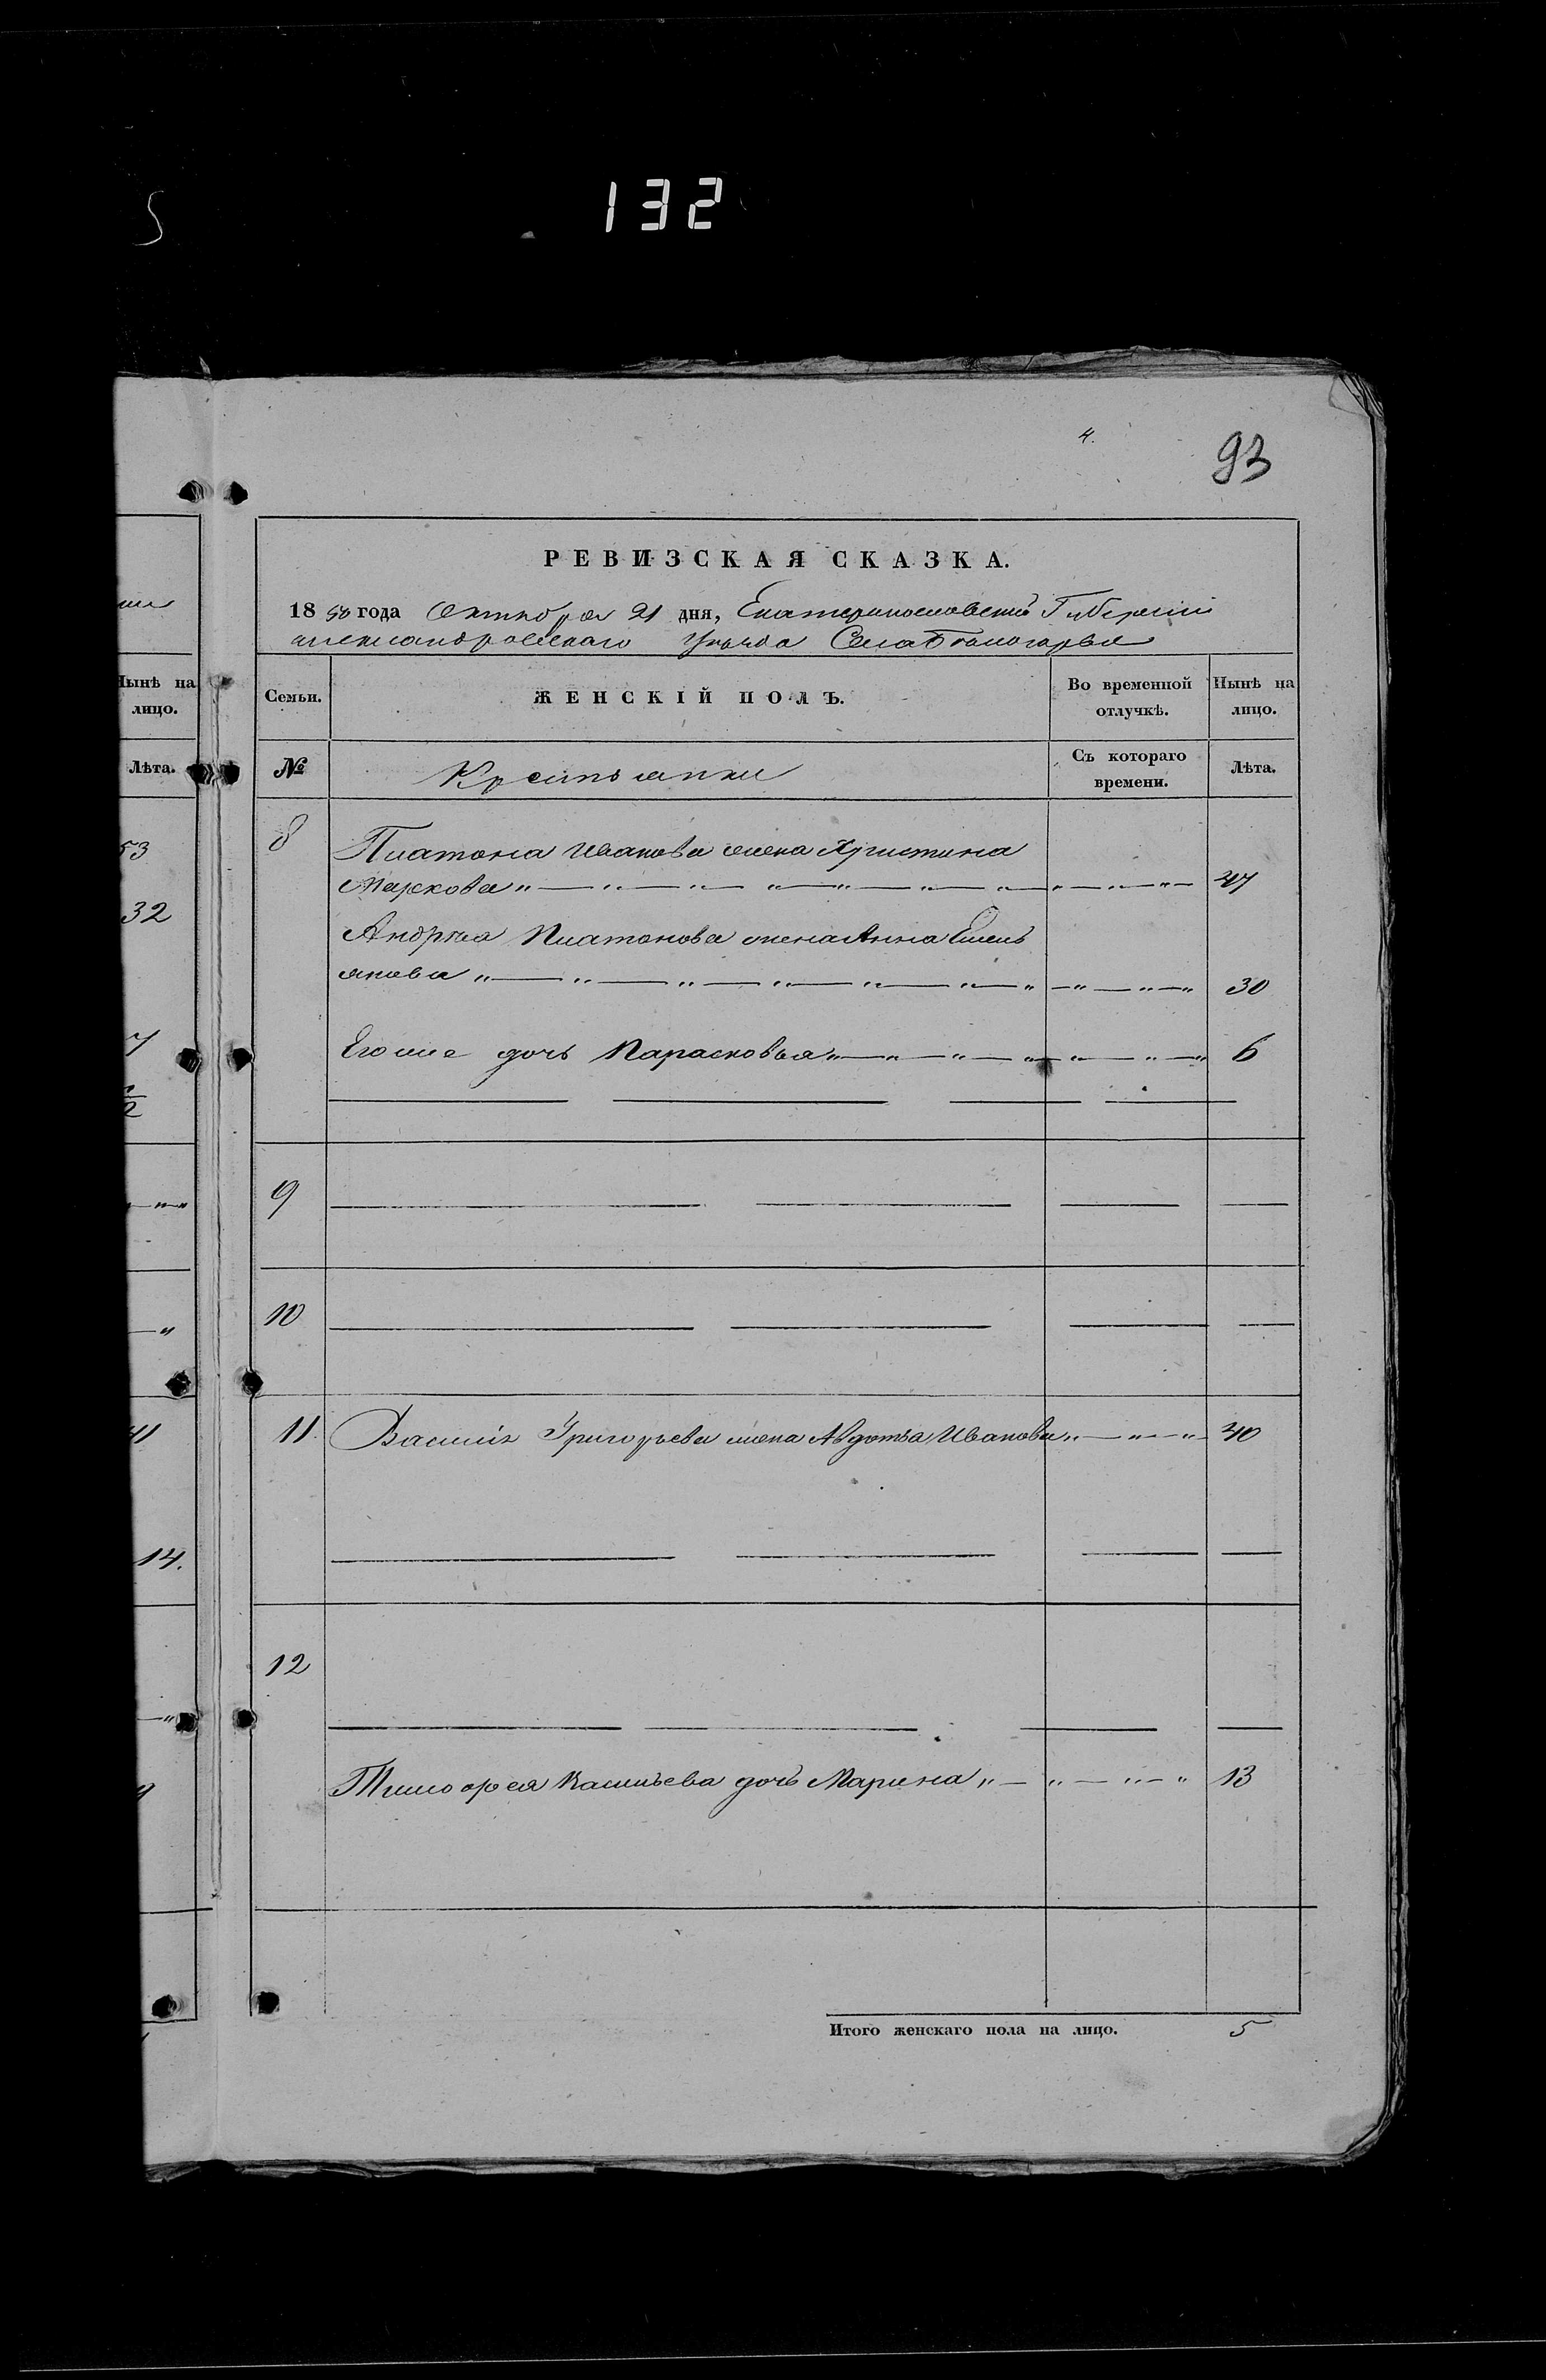 5
132
4.
93
РЕВИЗСКАЯ СКАЗКА.
1858 года Октября 21 дня, Екатеринославской Губерніи
александровскаго Уѣзда Села Бѣлогорья
Нынѣ на
лицо.
Лѣта.
53
32
7
41
14.
Семьи.
ЖЕНСКІЙ ПОЛЪ.
Во временной
отлучкѣ.
Нынѣ на
лицо.
№
Крестьянки
Съ котораго
времени.
Лѣта.
8
Платона Иванова жена Христина
Маркова 47
Андрѣя Платонова жена Анна Емель
янова 30
Его же дочь Парасковья 6
9
10
11. Василія Григорьева жена Авдотья Иванова 40
12
Тимофея Васильева дочь Марина 13
Итого женскаго пола на лицо. 5